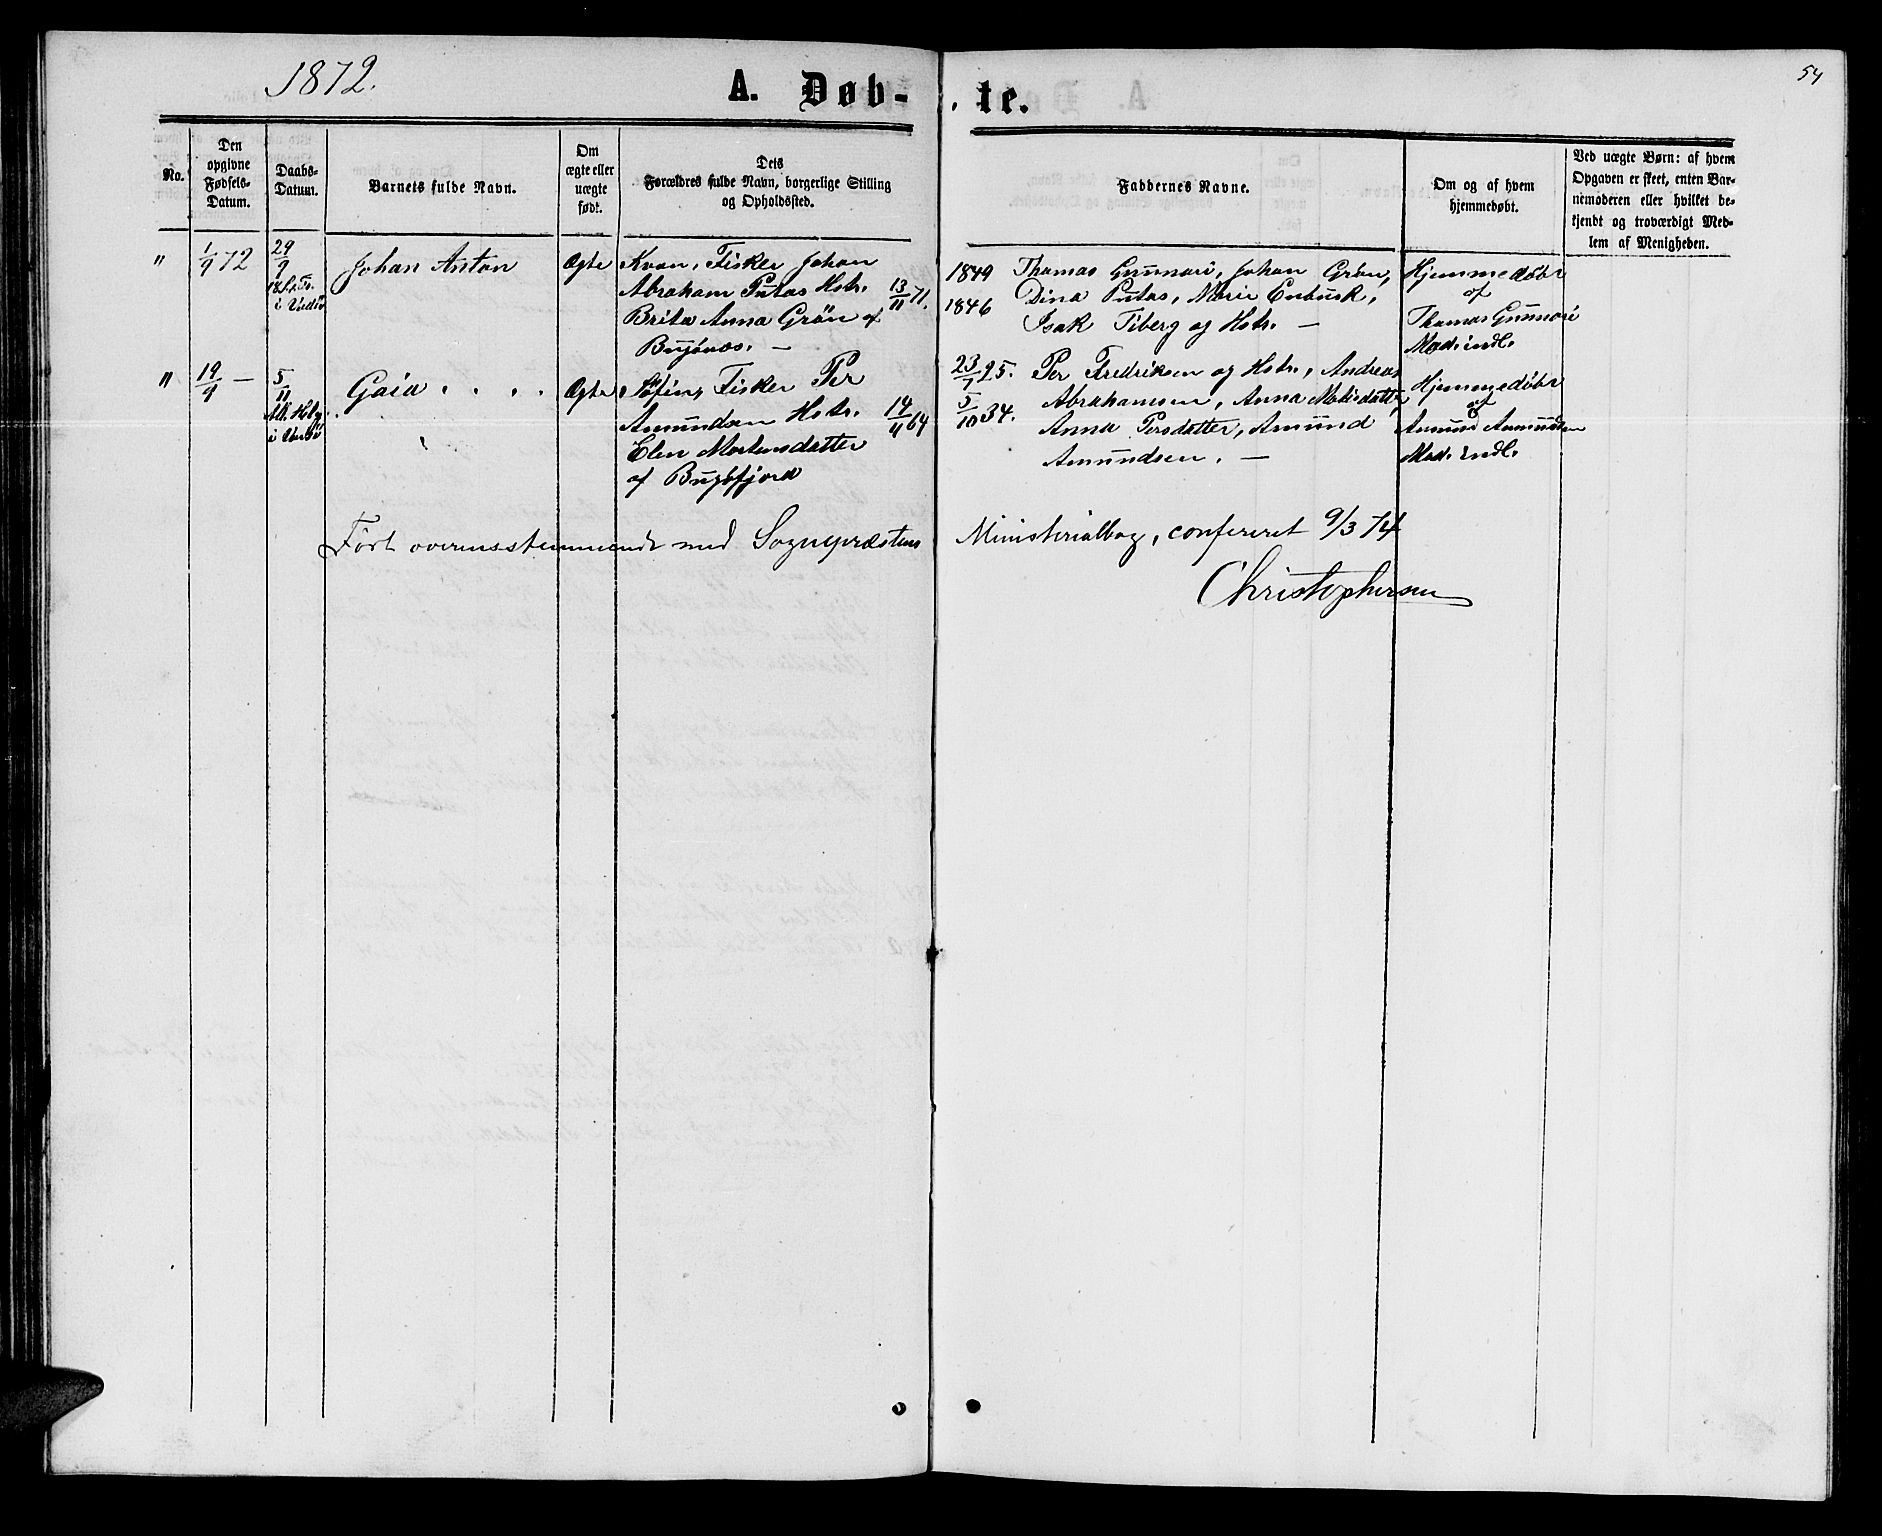 54
1872.
A. Døb-
te.
No.
Den
opgivne
Fødsels-
Datum.
Daabs-
Datum.
Barnets fulde Navn.
Om
ægte eller
uægte
født.
Dets
Forældres fulde Navn, borgerlige Stilling
og Opholdssted.
Faddernes Navne.
Om og af hvem
hjemmedøbt.
Ved uægte Børn: af hvem
Opgaven er skeet, enten Bar-
nemoderen eller hvilket be-
kjendt og troværdigt Med-
lem af Menigheden.
" 1/9 72 29/9
18 S. e. Tr.
i Vadsø
Johan Anton
Ægte
Kvæn, Fisker Johan
Abraham Putas Hstr. 13/11 71.
Brita Anna Grön af
Bugönæs. —
1849
1846
Thomas Gunnari, Johan Grön,
Dina Putas, Marie Enbusk,
Isak Tiberg og Hstr. —
Hjemmedöbt
af
Thomas Gunnari
Mod. indl.
" 19/9 — 5/11
All. Helg.
i Vadsö
Gaia . . . .
Ægte
Söfin, Fisker Per
Amundsen Hstr. 14/4 64
Elen Mortensdatter
af Bugöfjord
23/7 25.
5/10 34.
Per Fredriksen og Hstr., Andreas
Abrahamsen, Anna Mathisdatter
Anna Persdatter, Amund
Amundsen. —
Hjemmedöbt
af
Amund Amundsen
Mod. indl.
Fört overensstemmende med Sognepræstens Ministerialbog, confereret 9/3 74
Christophersen